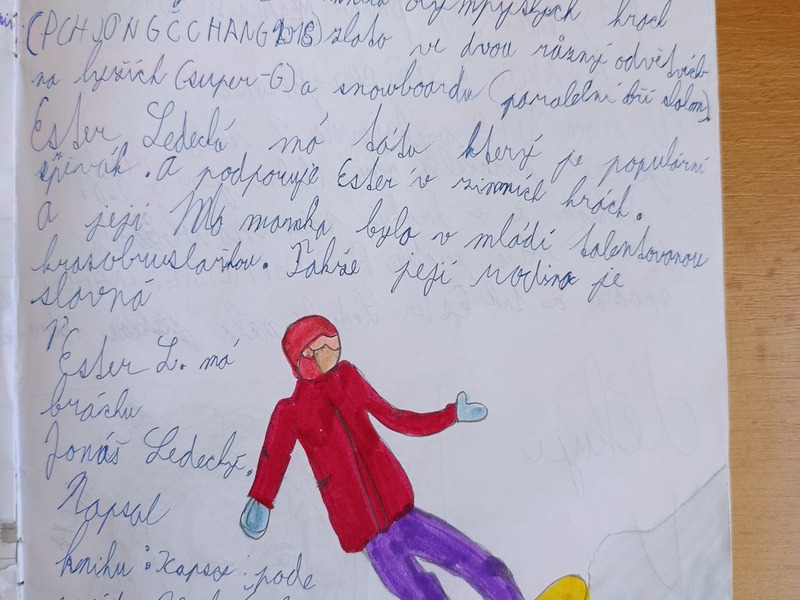 olympijských hrách
(PCHJONGČCHANG 2018) zlato ve dvou různý odvětvích
na lyžích (super-G) a snowboardu (paralelní obří slalom).
Ester Ledecká má tátu který je populární
zpívák. A podporuje Ester v zimních hrách.
A její Ma mamka byla v mládí talentovanou
krasobruslařkou. Takže její rodina je
slavná
Ester L. má
bráchu
Jonáš Ledecký.
Napsal
knihu: Kapsy: pode
děkuji